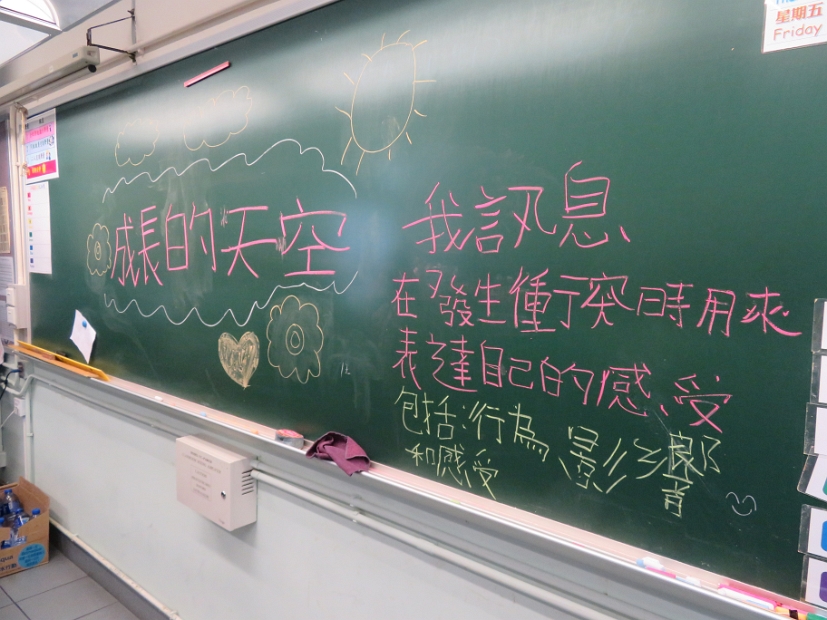 星期五
Friday
成長的天空
我訊息
在發生衝突時用來
表達自己的感受
包括:行為、影響
和感受